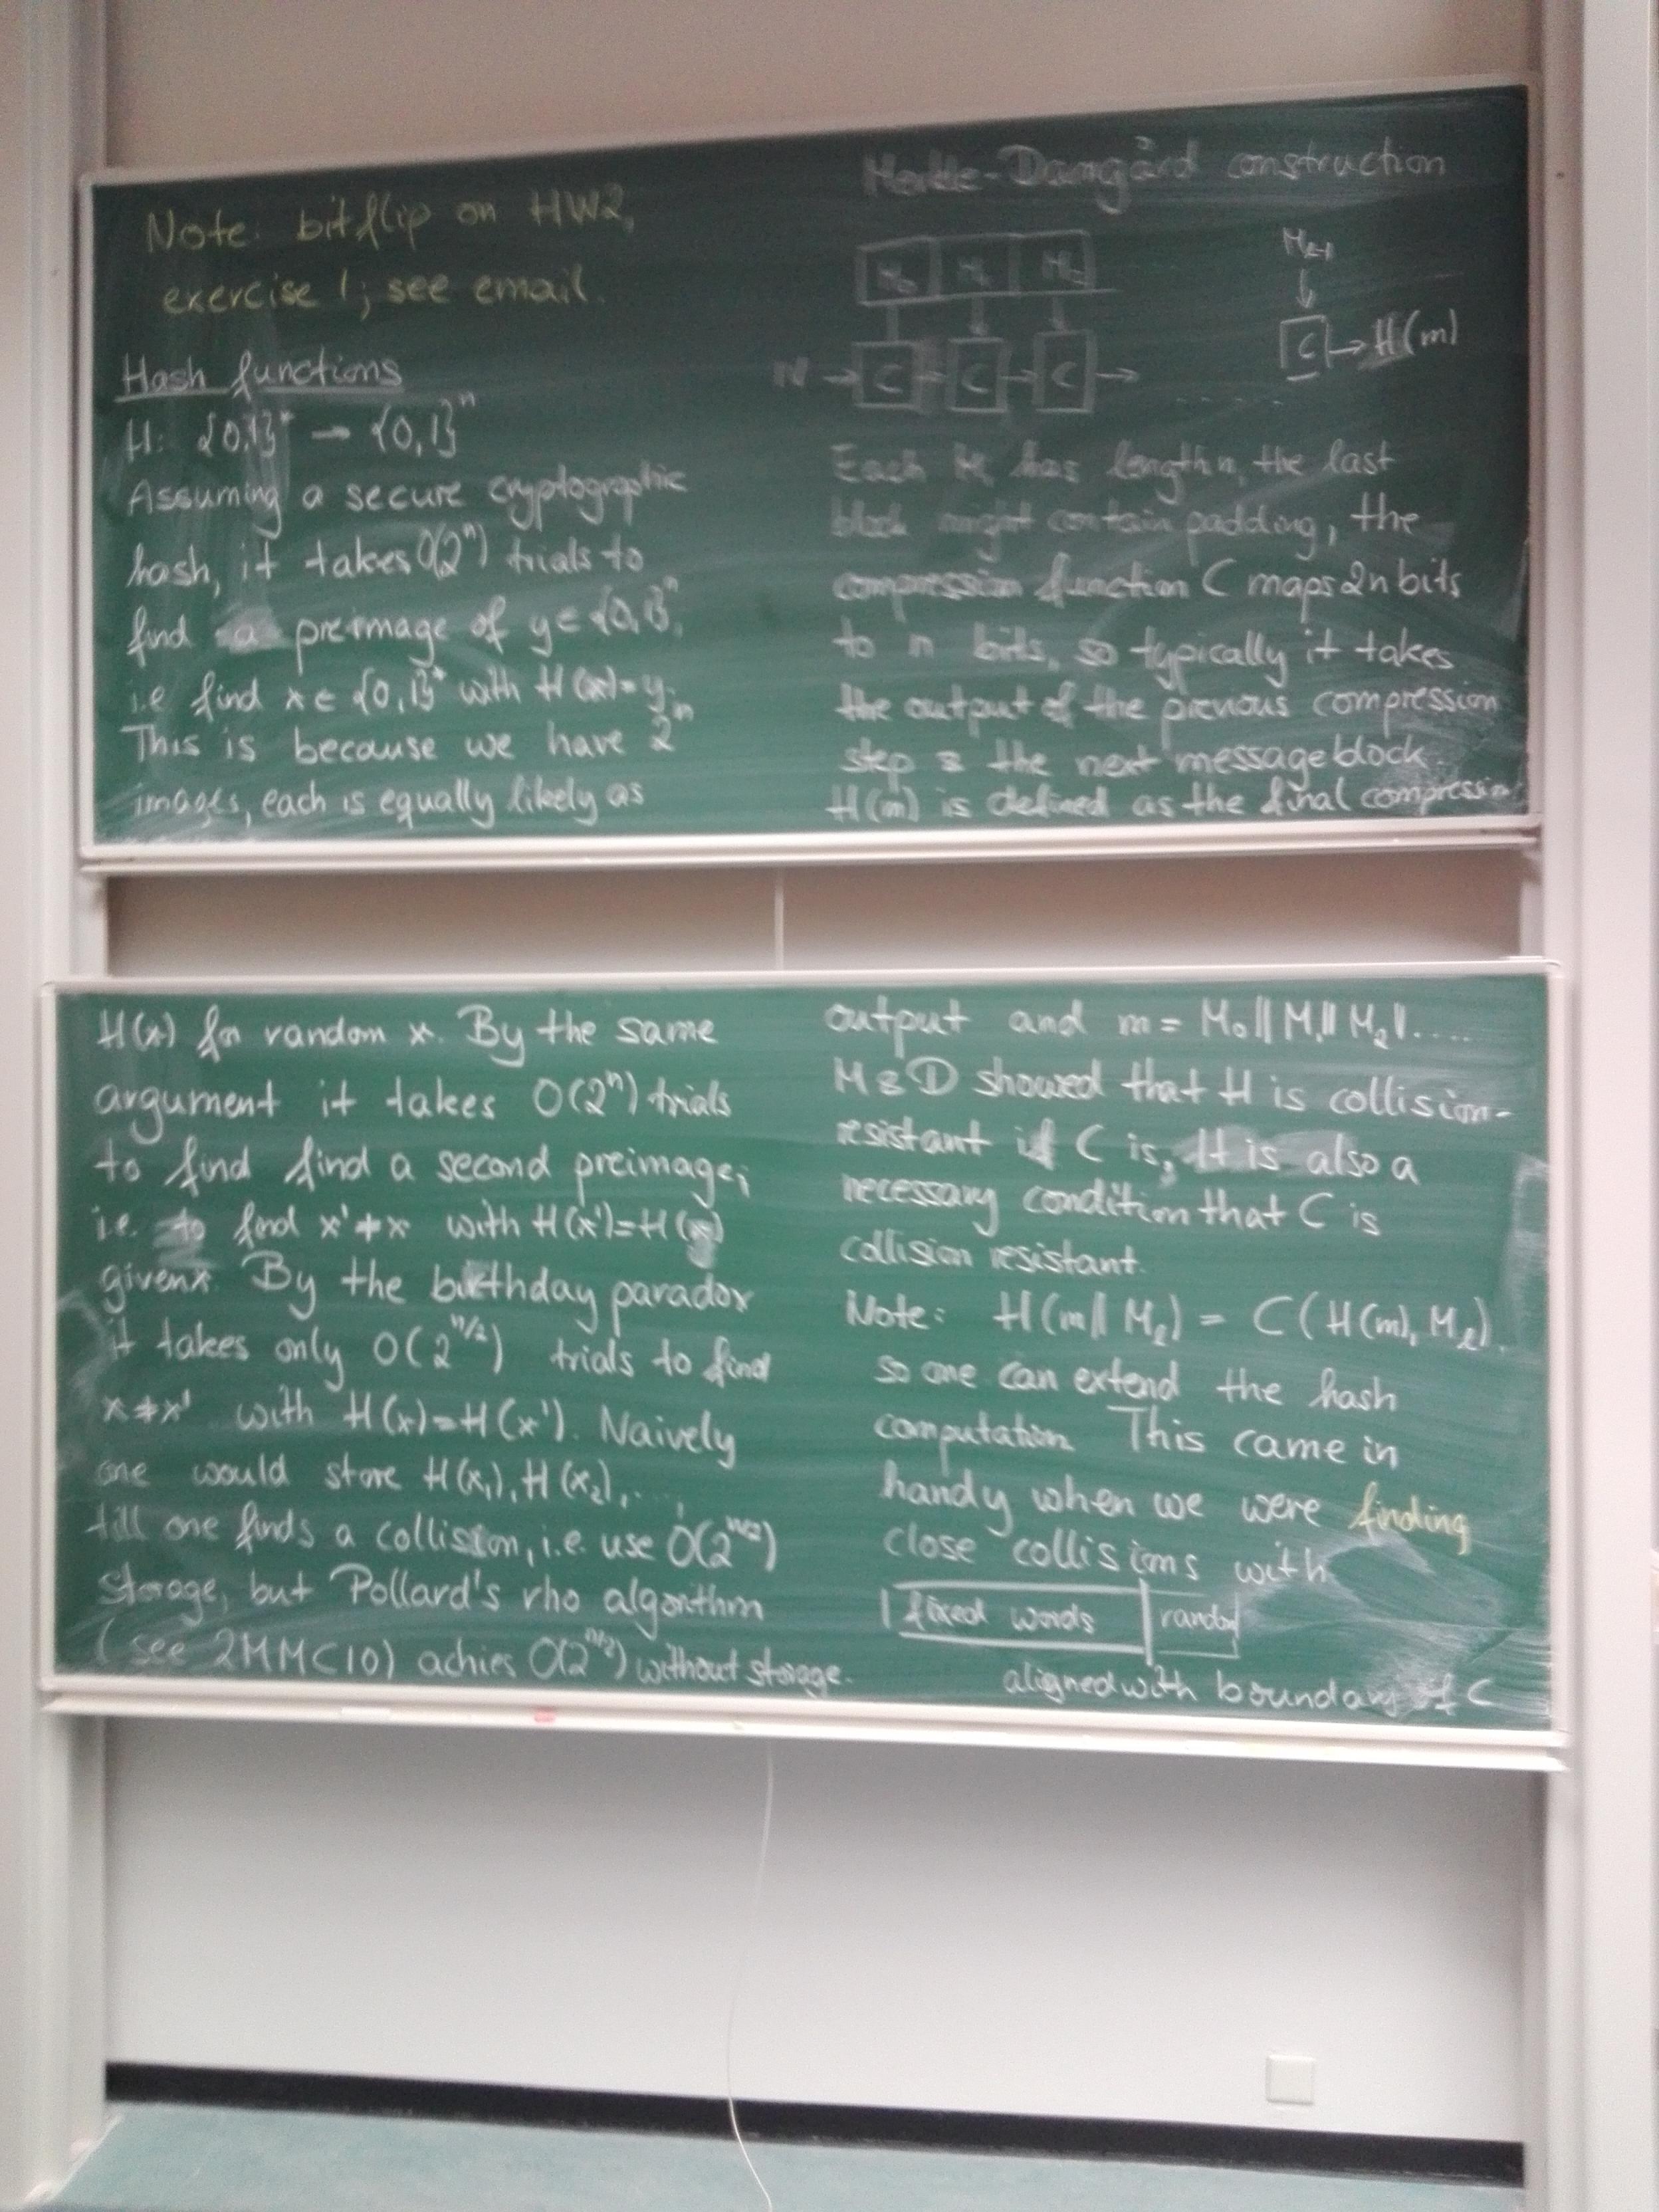 Note: bitflip on HW2,
exercise 1; see email.
Hash functions
H: {0,1}* → {0,1}ⁿ
Assuming a secure cryptographic
hash, it takes O(2ⁿ) trials to
find a preimage of y ∈ {0,1}ⁿ,
i.e find x ∈ {0,1}* with H(x)=y.
This is because we have 2ⁿ
images, each is equally likely as
H(x) for random x. By the same
argument it takes O(2ⁿ) trials
to find find a second preimage;
i.e. to find x'≠x with H(x')=H(x)
given x. By the birthday paradox
it takes only O(2^{n/2}) trials to find
x≠x' with H(x)=H(x'). Naively
one would store H(x₁), H(x₂),...,
till one finds a collision, i.e. use O(2^{n/2})
storage, but Pollard's rho algorithm
(see 2MMC10) achies O(2^{n/2}) without storage.
Merkle-Damgård construction
M₀ M₁ M₂
IV → C → C → C → .....
M_{ℓ-1}
C → H(m)
Each Mᵢ has length n, the last
block might contain padding, the
compression function C maps 2n bits
to n bits, so typically it takes
the output of the previous compression
step & the next message block.
H(m) is defined as the final compression
output and m = M₀||M₁||M₂||.....
M&D showed that H is collision-
resistant if C is, It is also a
necessary condition that C is
collision resistant.
Note: H(m||M_ℓ) = C(H(m), M_ℓ).
so one can extend the hash
computation. This came in
handy when we were finding
close collisions with
fixed words | random
aligned with boundary of C